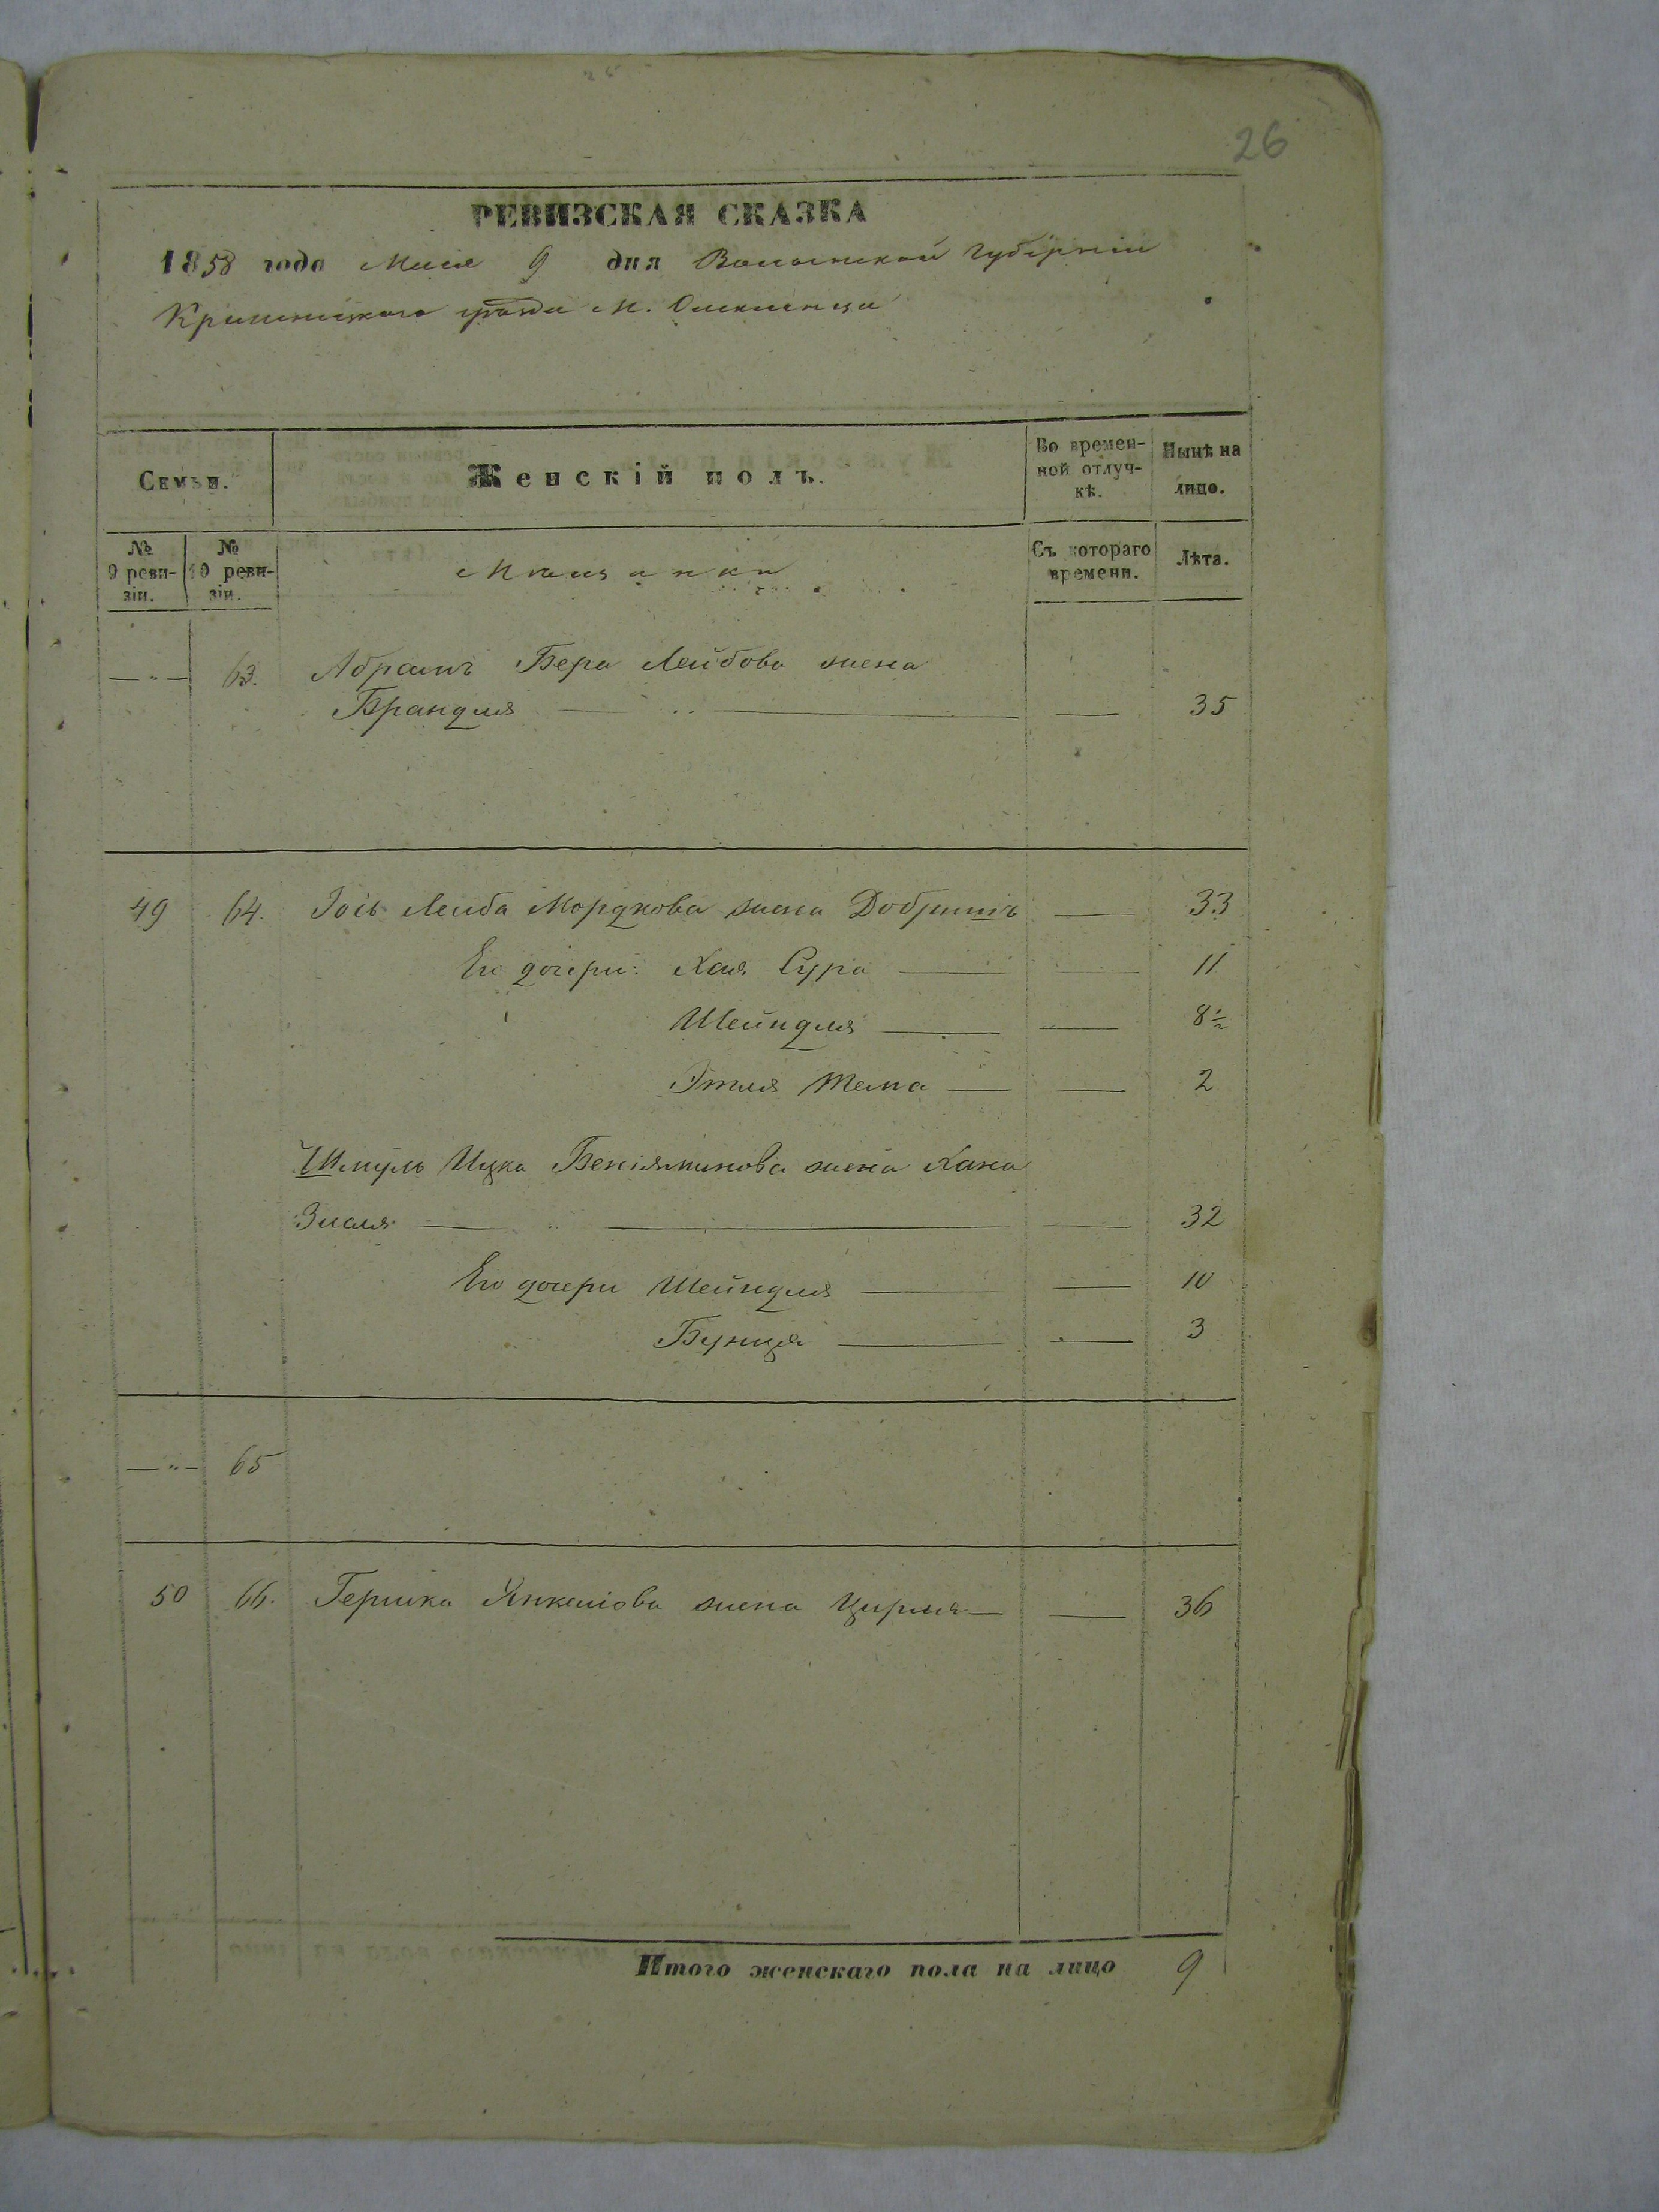 26
РЕВИЗСКАЯ СКАЗКА
1858 года Мая 9 дня Волынской Губерніи
Кременецкаго уѣзда М.
Семьи.
Женскій полъ.
Во времен-
ной отлуч-
кѣ.
Нынѣ на
лицо.
№
9 реви-
зіи.
№
10 реви-
зіи.
Мѣщанки
Съ котораго
времени.
Лѣта.
— " — 63. Абрамъ Бера Лейбова жена
Брандля — 35
49 64. Іось Лейба Мордкова жена Добришъ — 33
Его дочери: Хая Сура — 11
Шейндля — 8½
Этля Тема — 2
Шмуль Ицка Беніяминова жена Хана
Злата — 32
Его дочери Шейндля — 10
Бунця — 3
— " — 65
50 66. Гершка Янкелова жена Цирля — 36
Итого женскаго пола на лицо 9